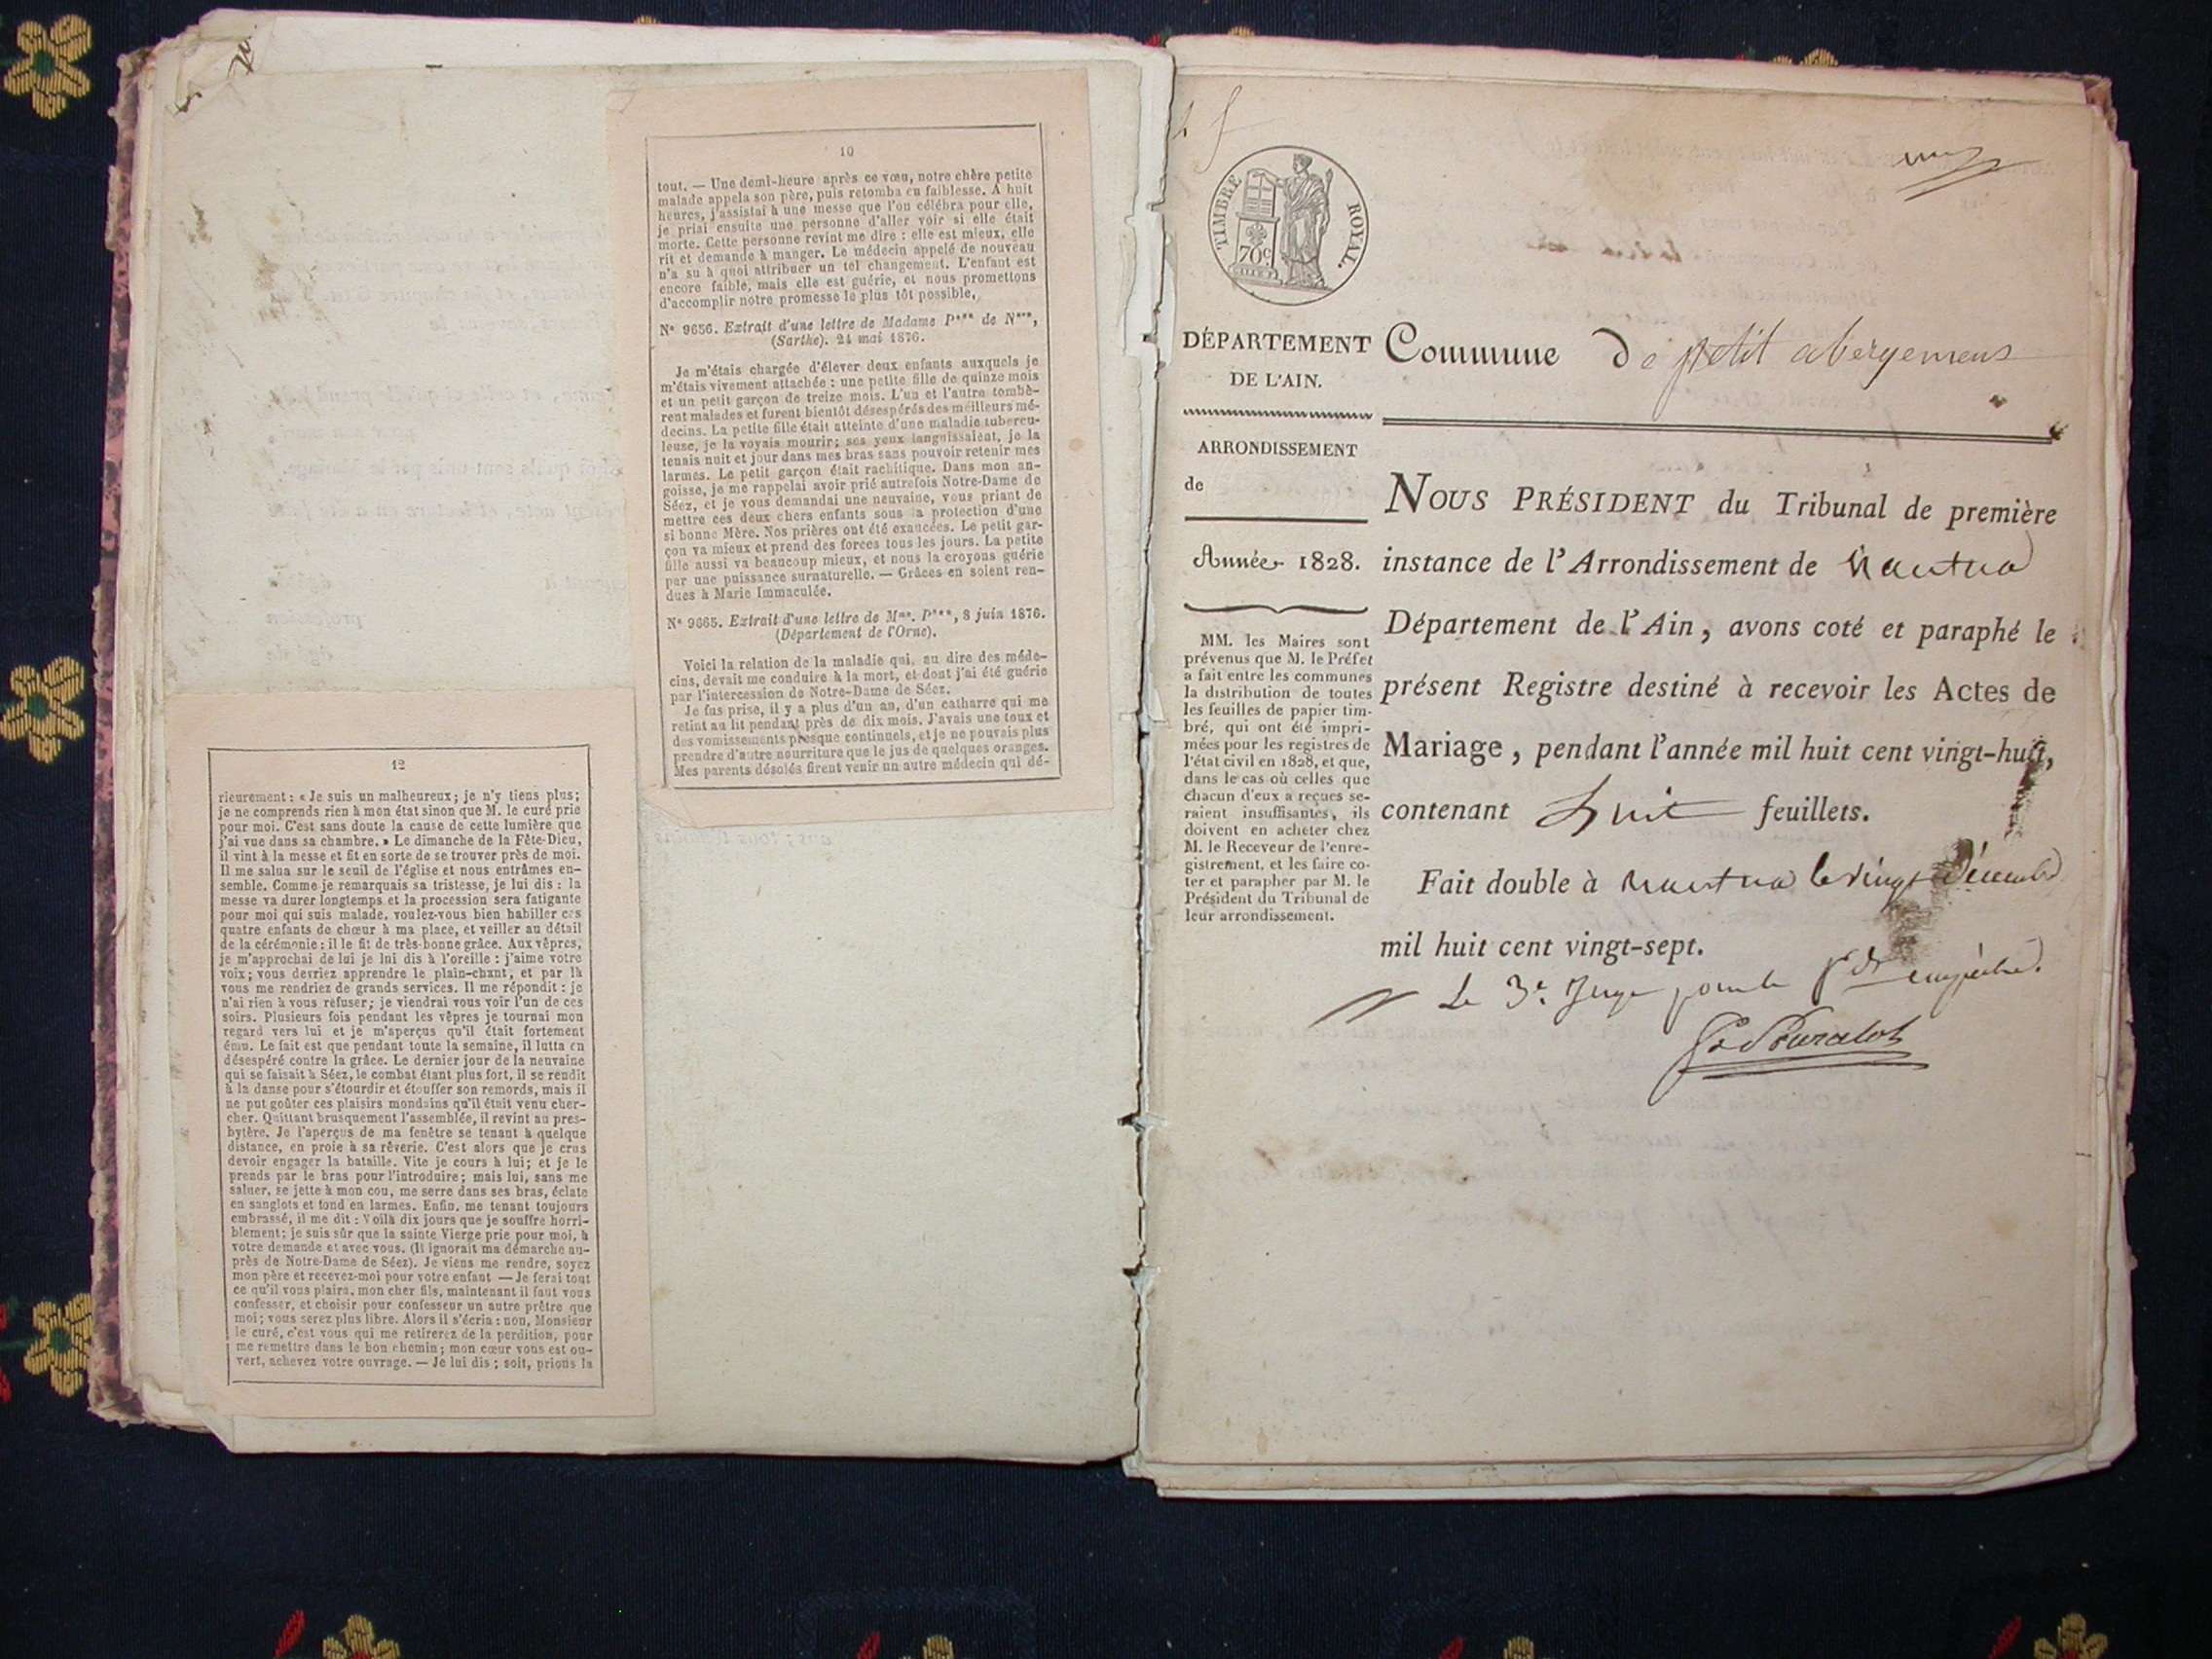 10
tout. — Une demi-heure après ce vœu, notre chère petite
malade appela son père, puis retomba en faiblesse. A huit
heures, j'assistai à une messe que l'on célébra pour elle,
je priai ensuite une personne d'aller voir si elle était
morte. Cette personne revint me dire : elle est mieux, elle
rit et demande à manger. Le médecin appelé de nouveau
n'a su à quoi attribuer un tel changement. L'enfant est
encore faible, mais elle est guérie, et nous promettons
d'accomplir notre promesse le plus tôt possible.
N° 9656. Extrait d'une lettre de Madame P*** de N***,
(Sarthe). 24 mai 1876.
Je m'étais chargée d'élever deux enfants auxquels je
m'étais vivement attachée : une petite fille de quinze mois
et un petit garçon de treize mois. L'un et l'autre tombè-
rent malades et furent bientôt désespérés des meilleurs mé-
decins. La petite fille était atteinte d'une maladie tubercu-
leuse, je la voyais mourir; ses yeux languissaient, je la
tenais nuit et jour dans mes bras sans pouvoir retenir mes
larmes. Le petit garçon était rachitique. Dans mon an-
goisse, je me rappelai avoir prié autrefois Notre-Dame de
Séez, et je vous demandai une neuvaine, vous priant de
mettre ces deux chers enfants sous la protection d'une
si bonne Mère. Nos prières ont été exaucées. Le petit gar-
çon va mieux et prend des forces tous les jours. La petite
fille aussi va beaucoup mieux, et nous la croyons guérie
par une puissance surnaturelle. — Grâces en soient ren-
dues à Marie Immaculée.
N° 9665. Extrait d'une lettre de Mme. P***, 8 juin 1876.
(Département de l'Orne).
Voici la relation de la maladie qui, au dire des méde-
cins, devait me conduire à la mort, et dont j'ai été guérie
par l'intercession de Notre-Dame de Séez.
Je fus prise, il y a plus d'un an, d'un catharre qui me
retint au lit pendant près de dix mois. J'avais une toux et
des vomissements presque continuels, et je ne pouvais plus
prendre d'autre nourriture que le jus de quelques oranges.
Mes parents désolés firent venir un autre médecin qui dé-
12
rieurement : « Je suis un malheureux; je n'y tiens plus;
je ne comprends rien à mon état sinon que M. le curé prie
pour moi. C'est sans doute la cause de cette lumière que
j'ai vue dans sa chambre. » Le dimanche de la Fête-Dieu,
il vint à la messe et fit en sorte de se trouver près de moi.
Il me salua sur le seuil de l'église et nous entrâmes en-
semble. Comme je remarquais sa tristesse, je lui dis : la
messe va durer longtemps et la procession sera fatigante
pour moi qui suis malade, voulez-vous bien habiller ces
quatre enfants de chœur à ma place, et veiller au détail
de la cérémonie : il le fit de très-bonne grâce. Aux vêpres,
je m'approchai de lui je lui dis à l'oreille : j'aime votre
voix; vous devriez apprendre le plain-chant, et par là
vous me rendriez de grands services. Il me répondit : je
n'ai rien à vous refuser; je viendrai vous voir l'un de ces
soirs. Plusieurs fois pendant les vêpres je tournai mon
regard vers lui et je m'aperçus qu'il était fortement
ému. Le fait est que pendant toute la semaine, il lutta en
désespéré contre la grâce. Le dernier jour de la neuvaine
qui se faisait à Séez, le combat étant plus fort, il se rendit
à la danse pour s'étourdir et étouffer son remords, mais il
ne put goûter ces plaisirs mondains qu'il était venu cher-
cher. Quittant brusquement l'assemblée, il revint au pres-
bytère. Je l'aperçus de ma fenêtre se tenant à quelque
distance, en proie à sa rêverie. C'est alors que je crus
devoir engager la bataille. Vite je cours à lui; et je le
prends par le bras pour l'introduire; mais lui, sans me
saluer, se jette à mon cou, me serre dans ses bras, éclate
en sanglots et fond en larmes. Enfin, me tenant toujours
embrassé, il me dit : Voilà dix jours que je souffre horri-
blement; je suis sûr que la sainte Vierge prie pour moi, à
votre demande et avec vous. (Il ignorait ma démarche au-
près de Notre-Dame de Séez). Je viens me rendre, soyez
mon père et recevez-moi pour votre enfant — Je ferai tout
ce qu'il vous plaira, mon cher fils, maintenant il faut vous
confesser, et choisir pour confesseur un autre prêtre que
moi; vous serez plus libre. Alors il s'écria : non, Monsieur
le curé, c'est vous qui me retirerez de la perdition, pour
me remettre dans le bon chemin; mon cœur vous est ou-
vert, achevez votre ouvrage. — Je lui dis : soit, prions la
TIMBRE ROYAL.
70c
DÉPARTEMENT
DE L'AIN.
ARRONDISSEMENT
de
Année 1828.
MM. les Maires sont
prévenus que M. le Préfet
a fait entre les communes
la distribution de toutes
les feuilles de papier tim-
bré, qui ont été impri-
mées pour les registres de
l'état civil en 1828, et que,
dans le cas où celles que
chacun d'eux a reçues se-
raient insuffisantes, ils
doivent en acheter chez
M. le Receveur de l'enre-
gistrement, et les faire co-
ter et parapher par M. le
Président du Tribunal de
leur arrondissement.
Commune De petit abergement
NOUS PRÉSIDENT du Tribunal de première
instance de l'Arrondissement de Nantua
Département de l'Ain, avons coté et paraphé le
présent Registre destiné à recevoir les Actes de
Mariage, pendant l'année mil huit cent vingt-huit,
contenant huit feuillets.
Fait double à Nantua le vingt Décembre
mil huit cent vingt-sept.
Le 3e. Juge pour le Pdt empêché.